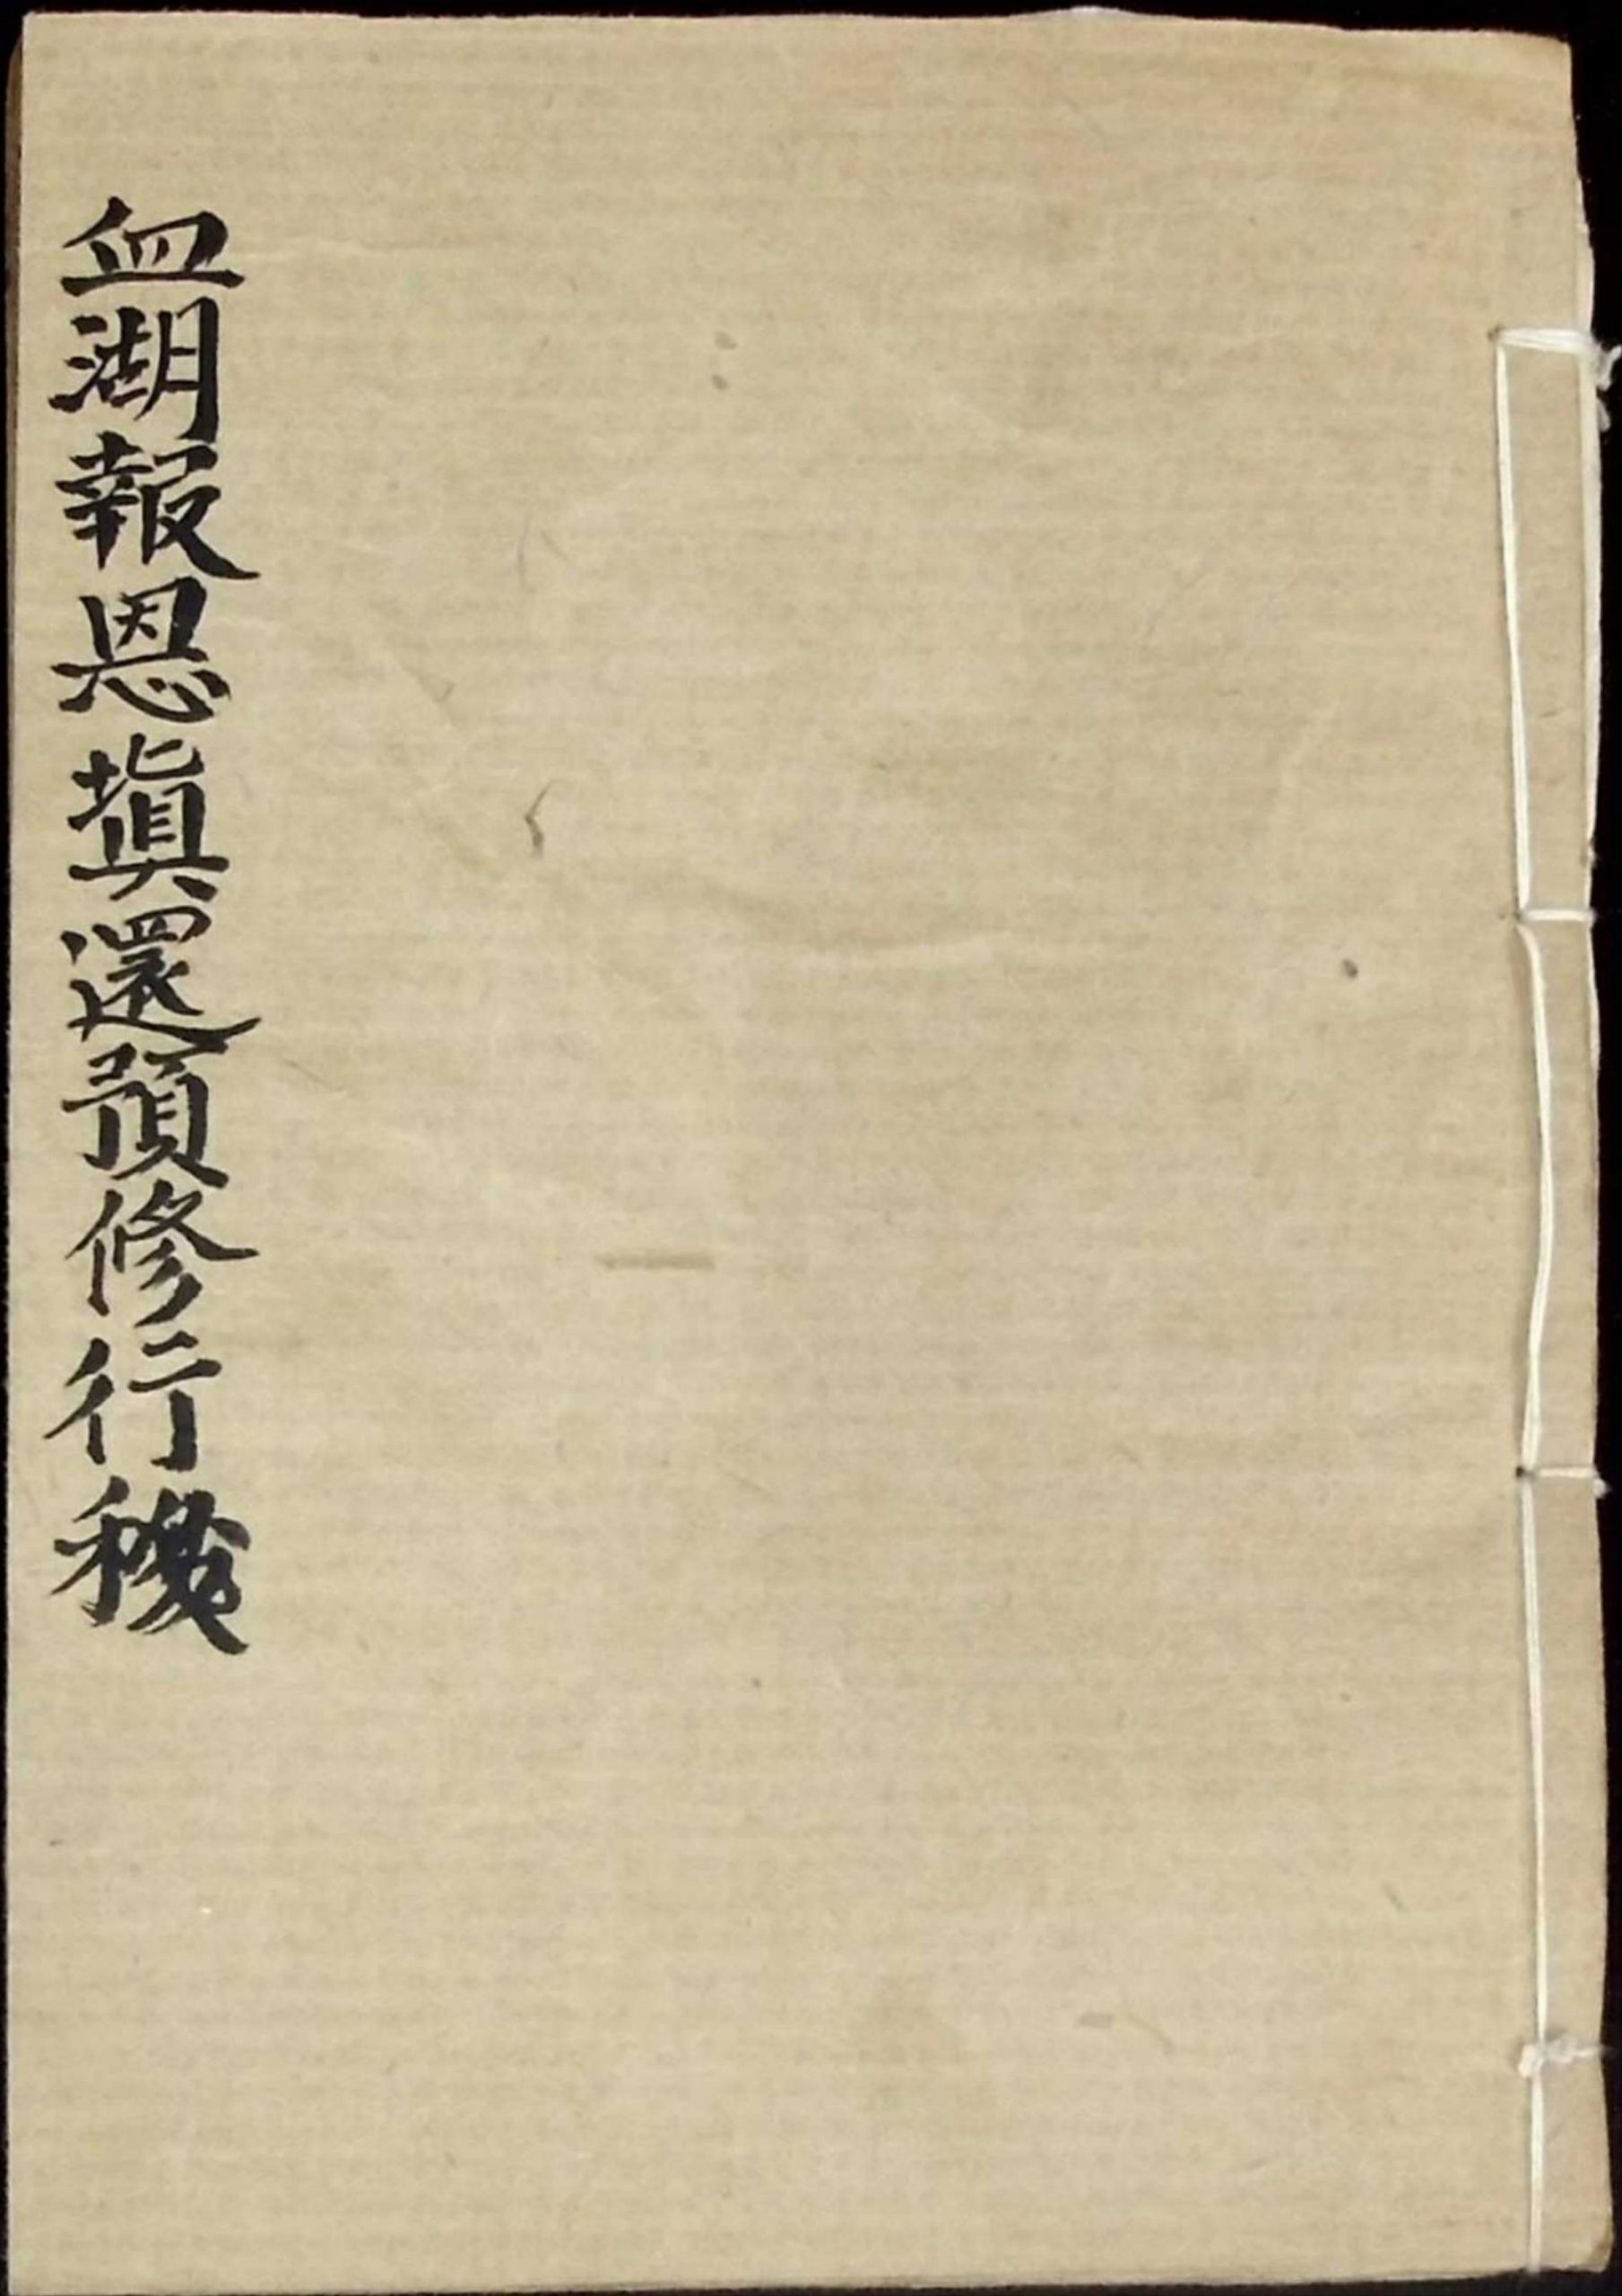 血湖報恩塡還預修行